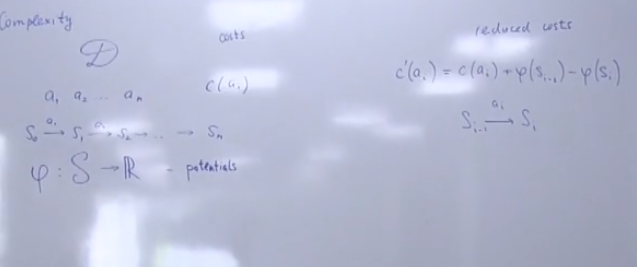 Complexity
costs
𝒟
c(aᵢ)
a₁ a₂ ... aₙ
S₀ —a₁→ S₁ —a₂→ S₂ → ... → Sₙ
φ : S → ℝ - potentials
reduced costs
c'(aᵢ) = c(aᵢ) + φ(sᵢ₋₁) - φ(sᵢ)
Sᵢ₋₁ —aᵢ→ Sᵢ